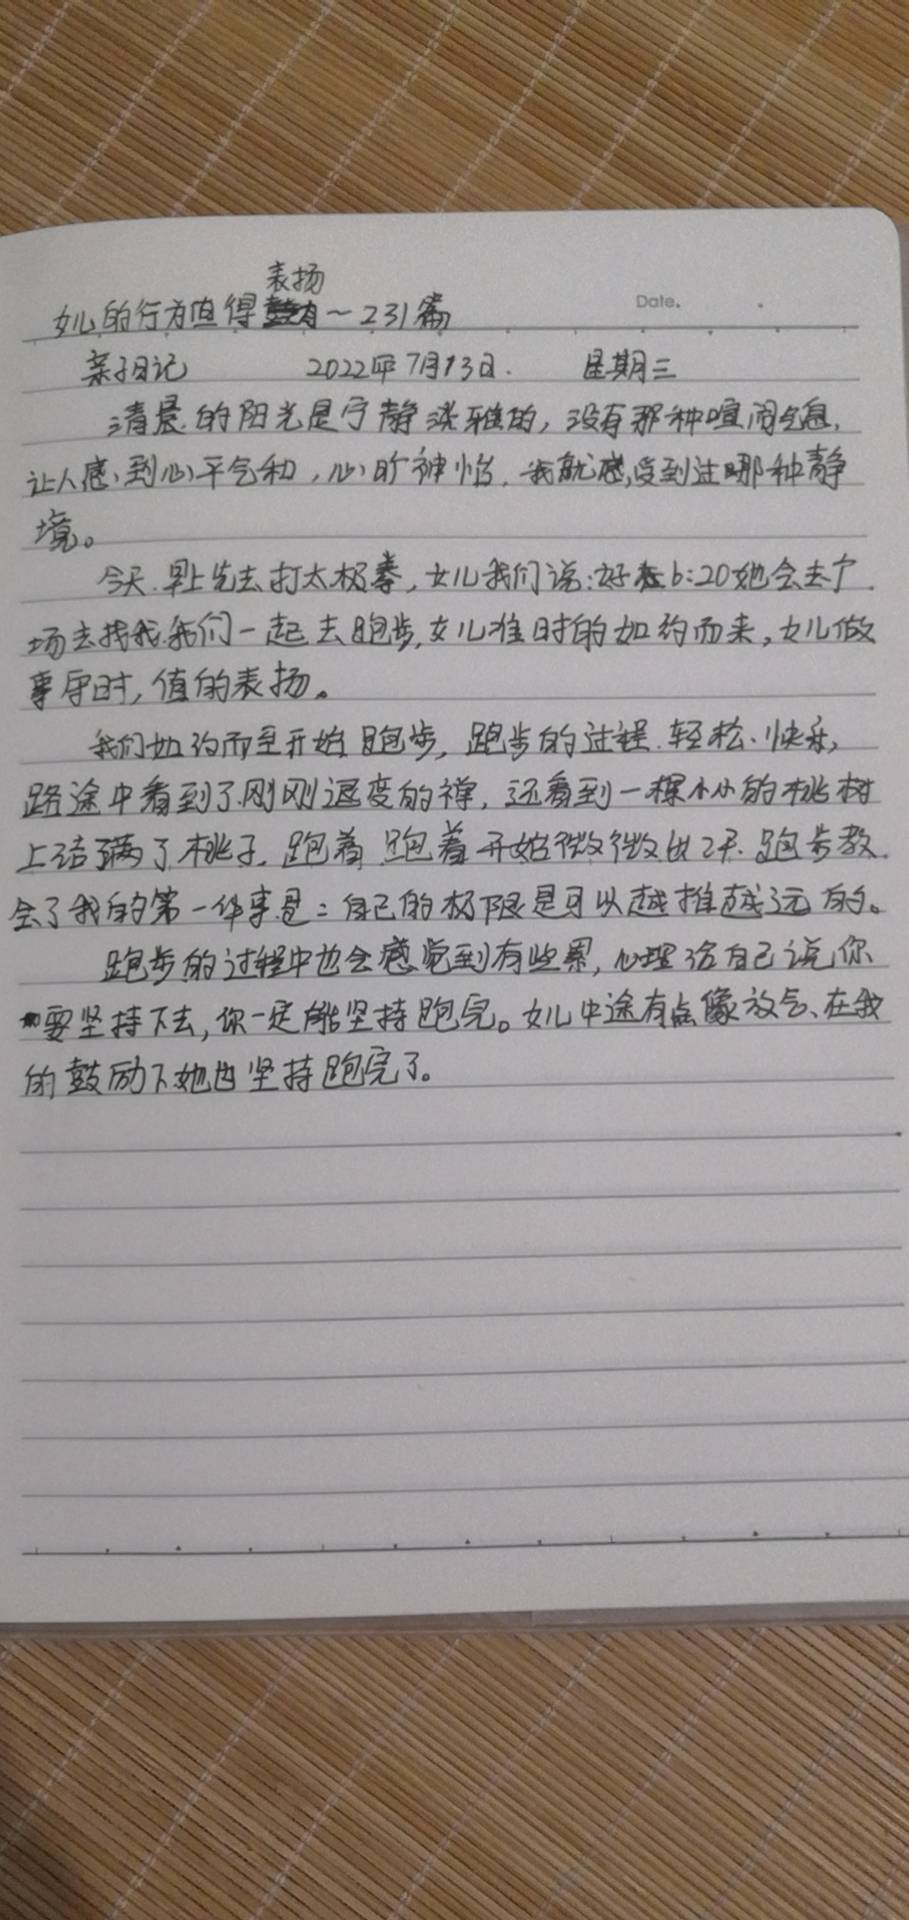 表扬
女儿的行为值得~231篇
Date.
亲子日记 2022年7月13日. 星期三
清晨的阳光是宁静淡雅的,没有那种喧闹气息,
让人感到心平气和,心旷神怡.我就感受到过哪种静
境。
今天.早上先去打太极拳,女儿我们说:好在6:20她会去广
场去找我.我们一起去跑步,女儿准时的如约而来,女儿做
事守时,值的表扬。
我们如约而至开始跑步,跑步的过程.轻松.快乐,
路途中看到了刚刚退变的禅,还看到一棵小小的桃树
上结满了桃子.跑着跑着开始微微出汗.跑步教
会了我的第一件事是:自己的极限是可以越推越远的。
跑步的过程中也会感觉到有些累,心理给自己说你
要坚持下去,你一定能坚持跑完。女儿中途有点像放弃、在我
的鼓励下她也坚持跑完了。